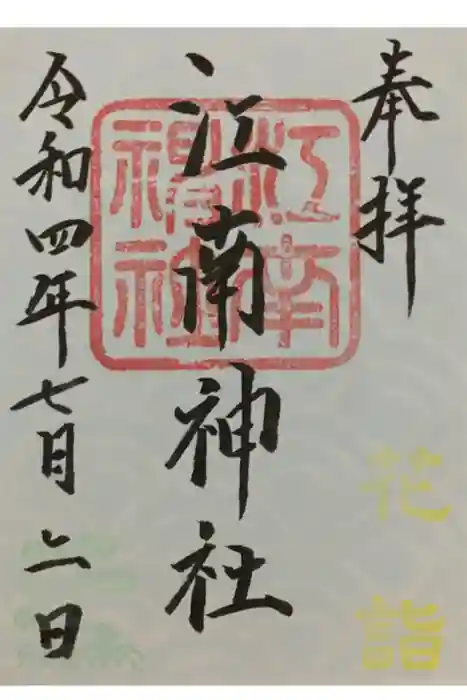 奉拝
江南神社
江南
神社
花詣
令和四年七月六日